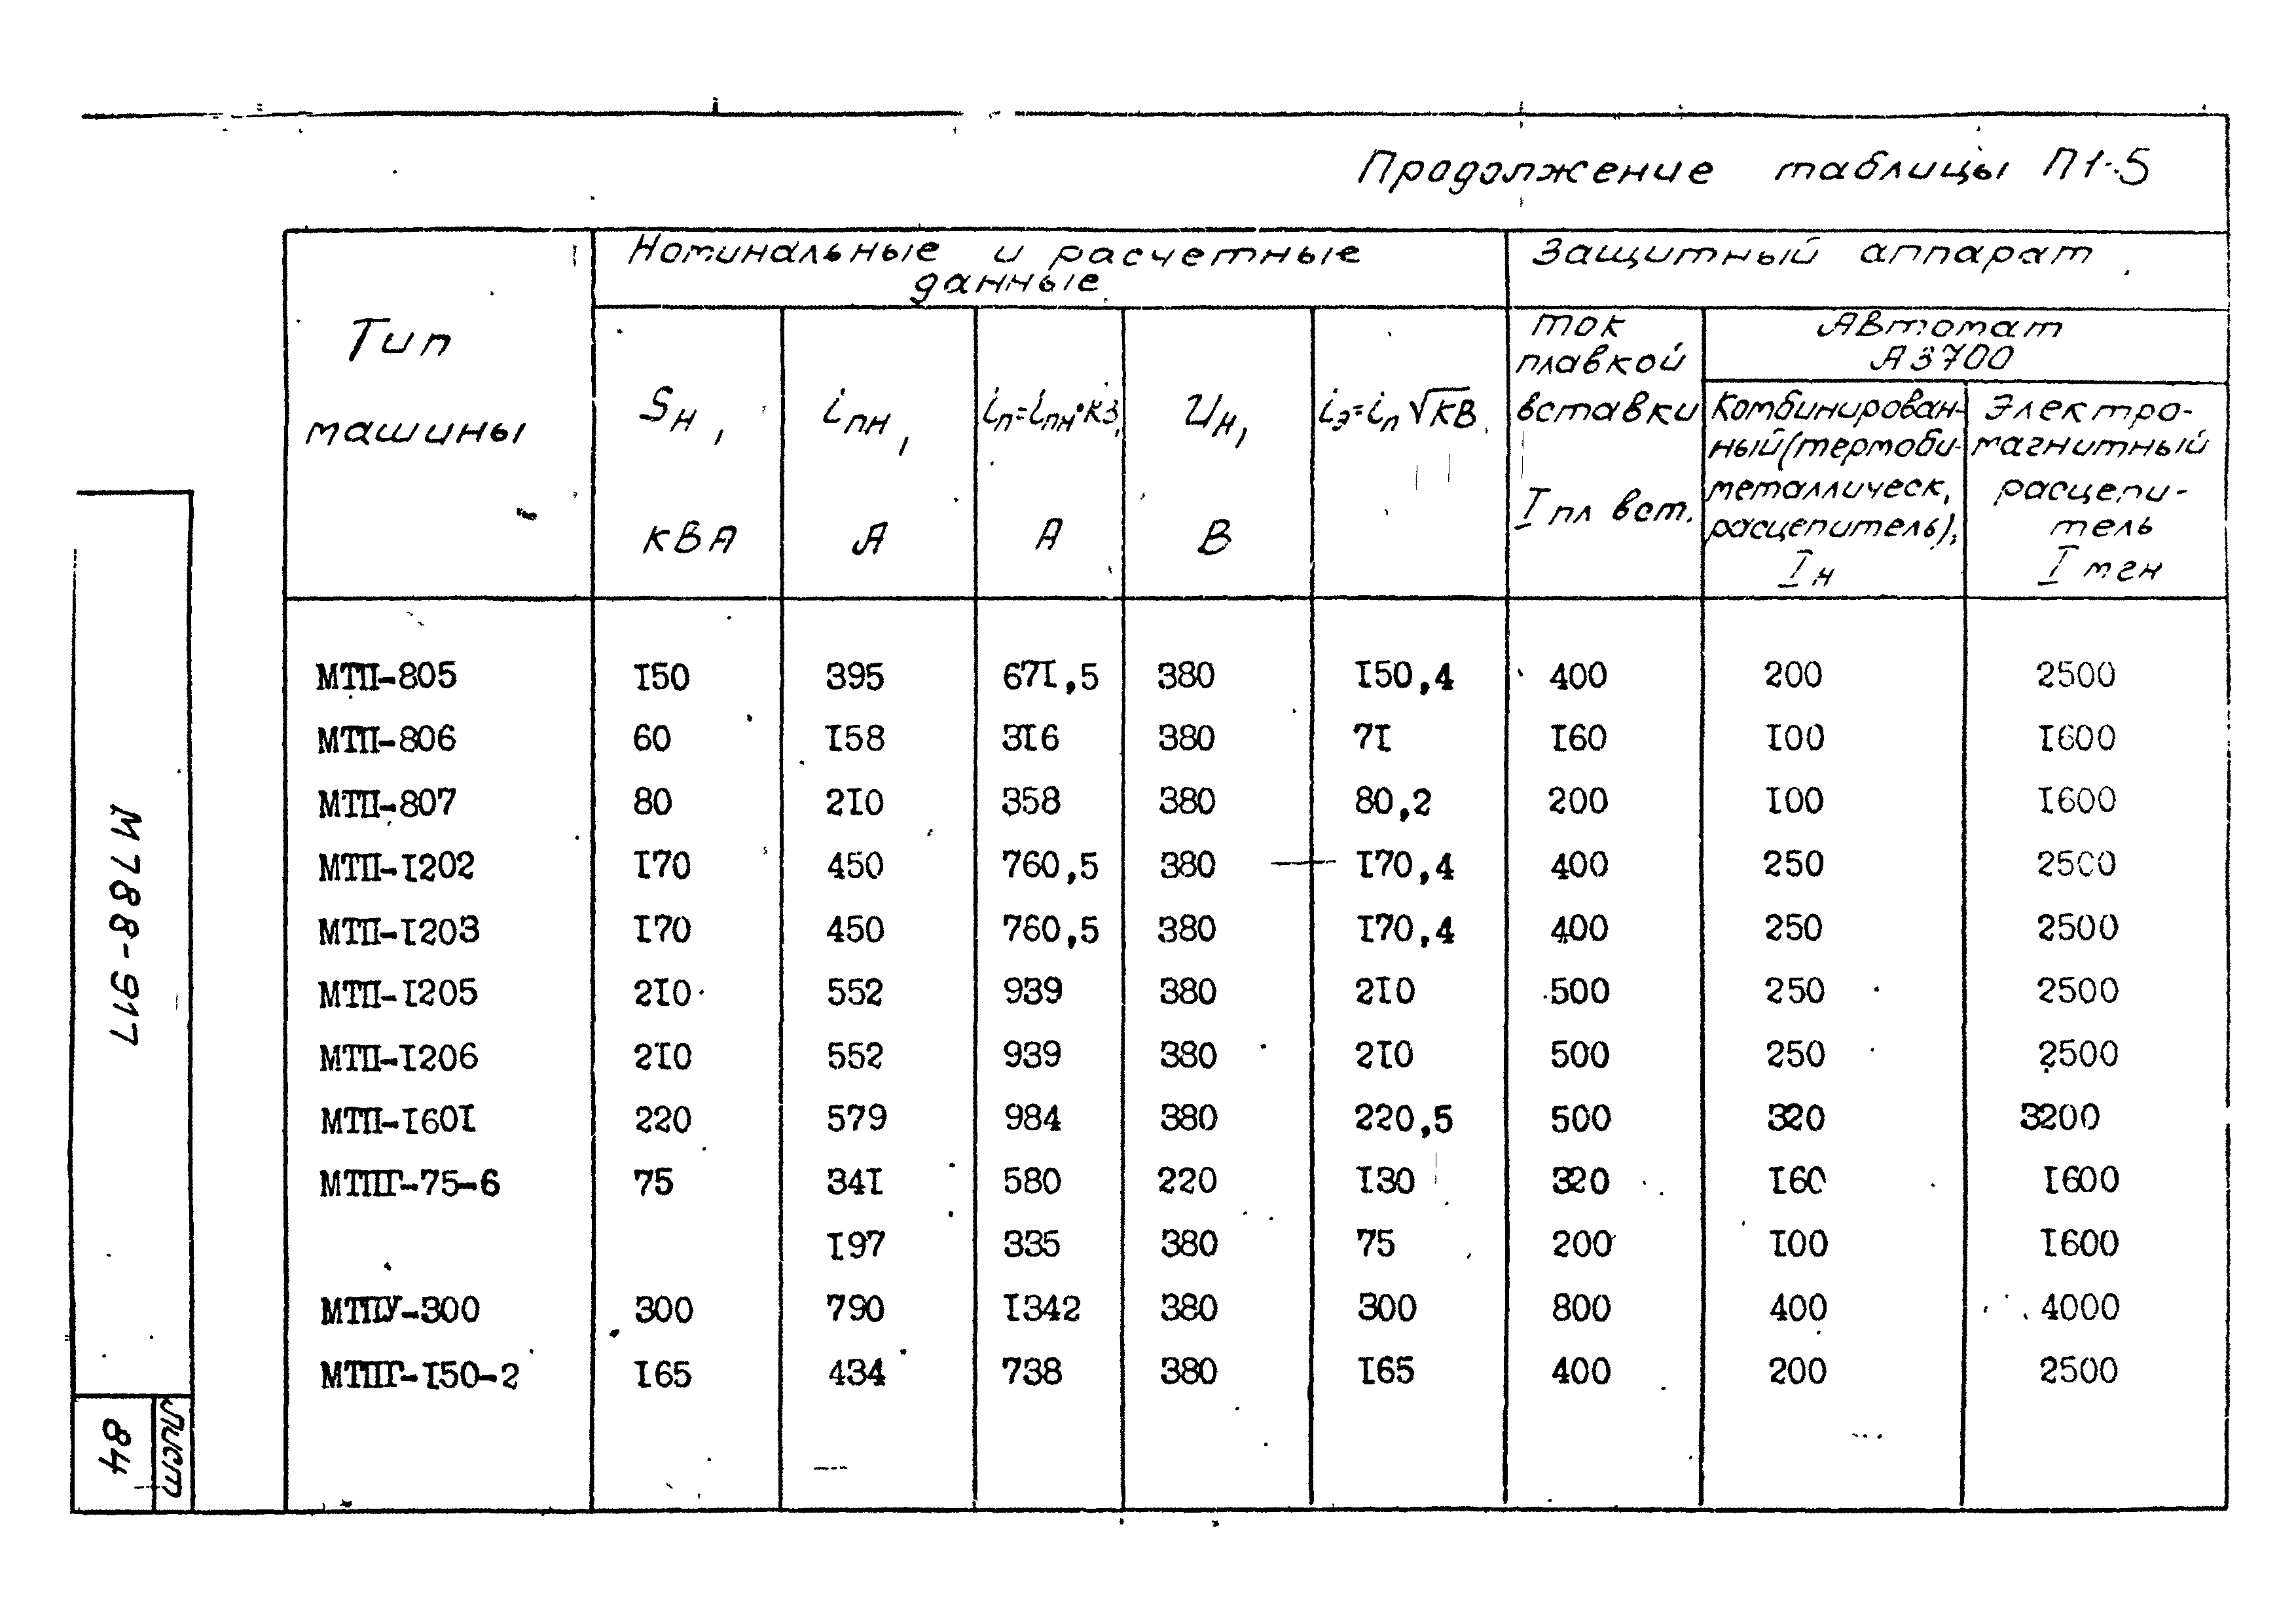 Продолжение таблицы П1-5
Тип машины
Номинальные и расчетные данные
Защитный аппарат
Sн, кВА
iпн, А
iп=iпн·КЗ, А
Uн, В
iэ=iп √КВ
ток плавкой вставки Iпл вст.
Автомат А3700
Комбинирован-
ный (термоби-
металлическ,
расцепитель),
Iн
Электро-
магнитный
расцепи-
тель
I мгн
МТП-805 I50 395 67I,5 380 I50,4 400 200 2500
МТП-806 60 I58 3I6 380 7I I60 I00 I600
МТП-807 80 2I0 358 380 80,2 200 I00 I600
МТП-I202 I70 450 760,5 380 I70,4 400 250 2500
МТП-I203 I70 450 760,5 380 I70,4 400 250 2500
МТП-I205 2I0 552 939 380 2I0 500 250 2500
МТП-I206 2I0 552 939 380 2I0 500 250 2500
МТП-I60I 220 579 984 380 220,5 500 320 3200
МТПГ-75-6 75 34I 580 220 I30 320 I60 I600
I97 335 380 75 200 I00 I600
МТПУ-300 300 790 I342 380 300 800 400 4000
МТПГ-I50-2 I65 434 738 380 I65 400 200 2500
М788-917
Лист
84